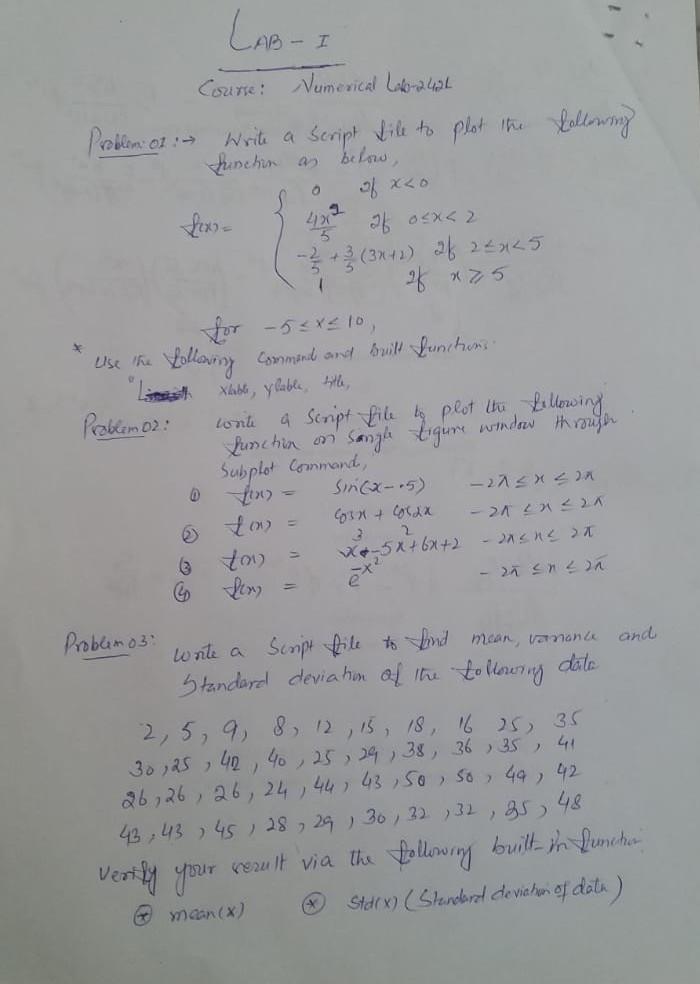 LAB - I
Course: Numerical Lab-242L
Problem:01:→ Write a Script file to plot the following
function as below,
f(x) = { 0 If x<0
4x²/5 If 0≤x<2
-2/5 + 3/5 (3x+2) If 2≤x<5
1 If x≥5
for -5≤x≤10,
* Use the following Command and built functions.
xlable, ylable, title,
Problem02: write a Script file to plot the following
function on Single figure window through
Subplot Command,
① f(x) = Sin(x-.5) -2π≤x≤2π
② f(x) = cosx + cos2x -2π≤x≤2π
③ f(x) = x³-5x²+6x+2 -2π≤x≤2π
④ f(x) = e^-x² -2π≤x≤2π
Problem03: write a Script file to find mean, variance and
Standard deviation of the following data
2, 5, 9, 8, 12, 15, 18, 16 25, 35
30, 25, 42, 40, 25, 29, 38, 36, 35, 41
26, 26, 26, 24, 44, 43, 50, 50, 49, 42
43, 43, 45, 28, 29, 30, 32, 32, 35, 48
Verify your result via the following built-in function.
* mean(x) * Std(x) (Standard deviation of data)